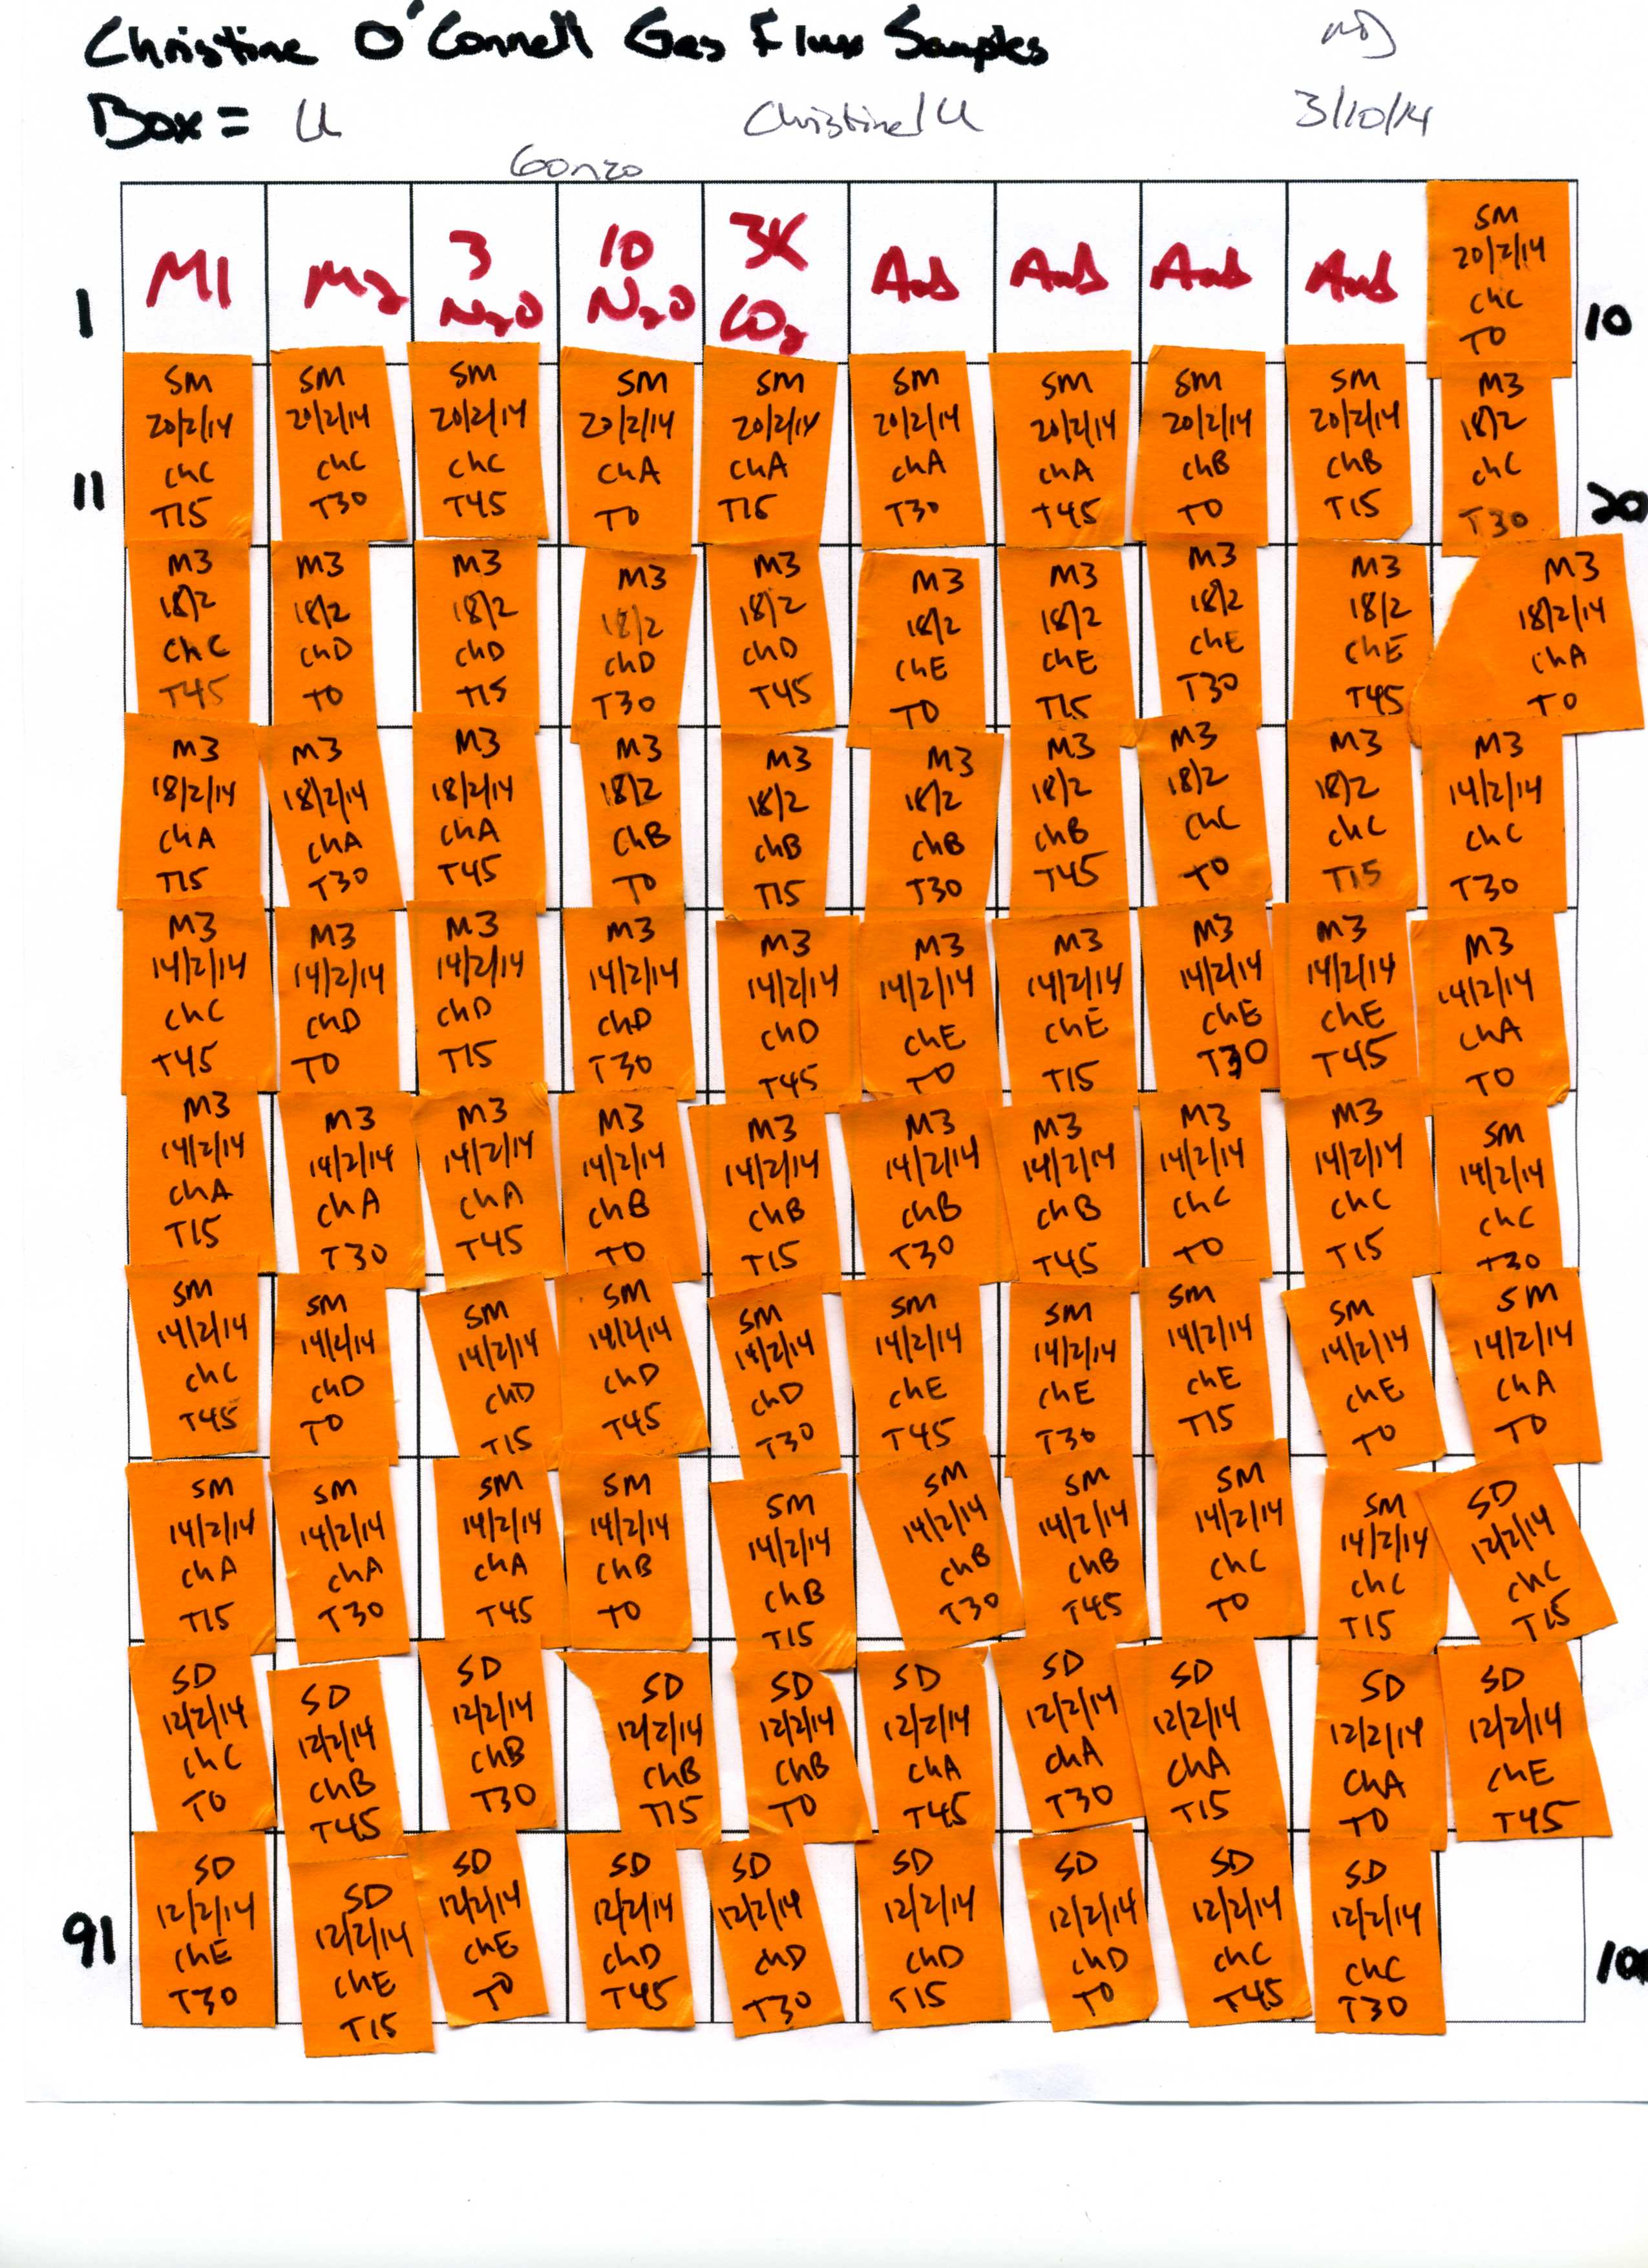 Christine O'Connell Gas Flux Samples
Box = U Christine/U 3/10/14
Gonzo
1
M1
M2
3
N2O
10
N2O
3K
CO2
And
And
And
And
SM
20/2/14
chC
T0
10
11
SM
20/2/14
chC
T15
SM
20/2/14
chC
T30
SM
20/2/14
chC
T45
SM
20/2/14
chA
T0
SM
20/2/14
chA
T15
SM
20/2/14
chA
T30
SM
20/2/14
chA
T45
SM
20/2/14
chB
T0
SM
20/2/14
chB
T15
M3
18/2
chC
T30
20
M3
18/2
chC
T45
M3
18/2
chD
T0
M3
18/2
chD
T15
M3
18/2
chD
T30
M3
18/2
chD
T45
M3
18/2
chE
T0
M3
18/2
chE
T15
M3
18/2
chE
T30
M3
18/2
chE
T45
M3
18/2/14
chA
T0
M3
18/2/14
chA
T15
M3
18/2/14
chA
T30
M3
18/2/14
chA
T45
M3
18/2
chB
T0
M3
18/2
chB
T15
M3
18/2
chB
T30
M3
18/2
chB
T45
M3
18/2
chC
T0
M3
18/2
chC
T15
M3
14/2/14
chC
T30
M3
14/2/14
chC
T45
M3
14/2/14
chD
T0
M3
14/2/14
chD
T15
M3
14/2/14
chD
T30
M3
14/2/14
chD
T45
M3
14/2/14
chE
T0
M3
14/2/14
chE
T15
M3
14/2/14
chE
T30
M3
14/2/14
chE
T45
M3
14/2/14
chA
T0
M3
14/2/14
chA
T15
M3
14/2/14
chA
T30
M3
14/2/14
chA
T45
M3
14/2/14
chB
T0
M3
14/2/14
chB
T15
M3
14/2/14
chB
T30
M3
14/2/14
chB
T45
M3
14/2/14
chC
T0
M3
14/2/14
chC
T15
SM
14/2/14
chC
T30
SM
14/2/14
chC
T45
SM
14/2/14
chD
T0
SM
14/2/14
chD
T15
SM
14/2/14
chD
T45
SM
14/2/14
chD
T30
SM
14/2/14
chE
T45
SM
14/2/14
chE
T30
SM
14/2/14
chE
T15
SM
14/2/14
chE
T0
SM
14/2/14
chA
T0
SM
14/2/14
chA
T15
SM
14/2/14
chA
T30
SM
14/2/14
chA
T45
SM
14/2/14
chB
T0
SM
14/2/14
chB
T15
SM
14/2/14
chB
T30
SM
14/2/14
chB
T45
SM
14/2/14
chC
T0
SM
14/2/14
chC
T15
SD
12/2/14
chC
T15
SD
12/2/14
chC
T0
SD
12/2/14
chB
T45
SD
12/2/14
chB
T30
SD
12/2/14
chB
T15
SD
12/2/14
chB
T0
SD
12/2/14
chA
T45
SD
12/2/14
chA
T30
SD
12/2/14
chA
T15
SD
12/2/14
chA
T0
SD
12/2/14
chE
T45
91
SD
12/2/14
chE
T30
SD
12/2/14
chE
T15
SD
12/2/14
chE
T0
SD
12/2/14
chD
T45
SD
12/2/14
chD
T30
SD
12/2/14
chD
T15
SD
12/2/14
chD
T0
SD
12/2/14
chC
T45
SD
12/2/14
chC
T30